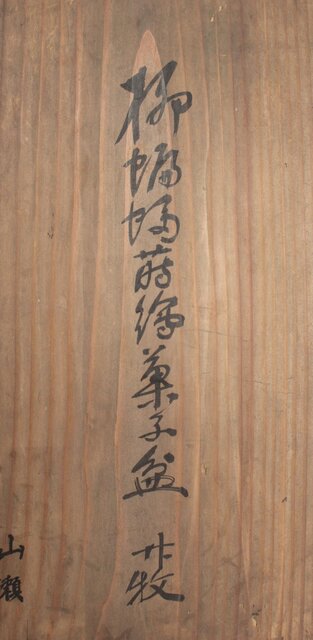 柳蝙蝠蒔繪菓子盆 廿枚
山瀬